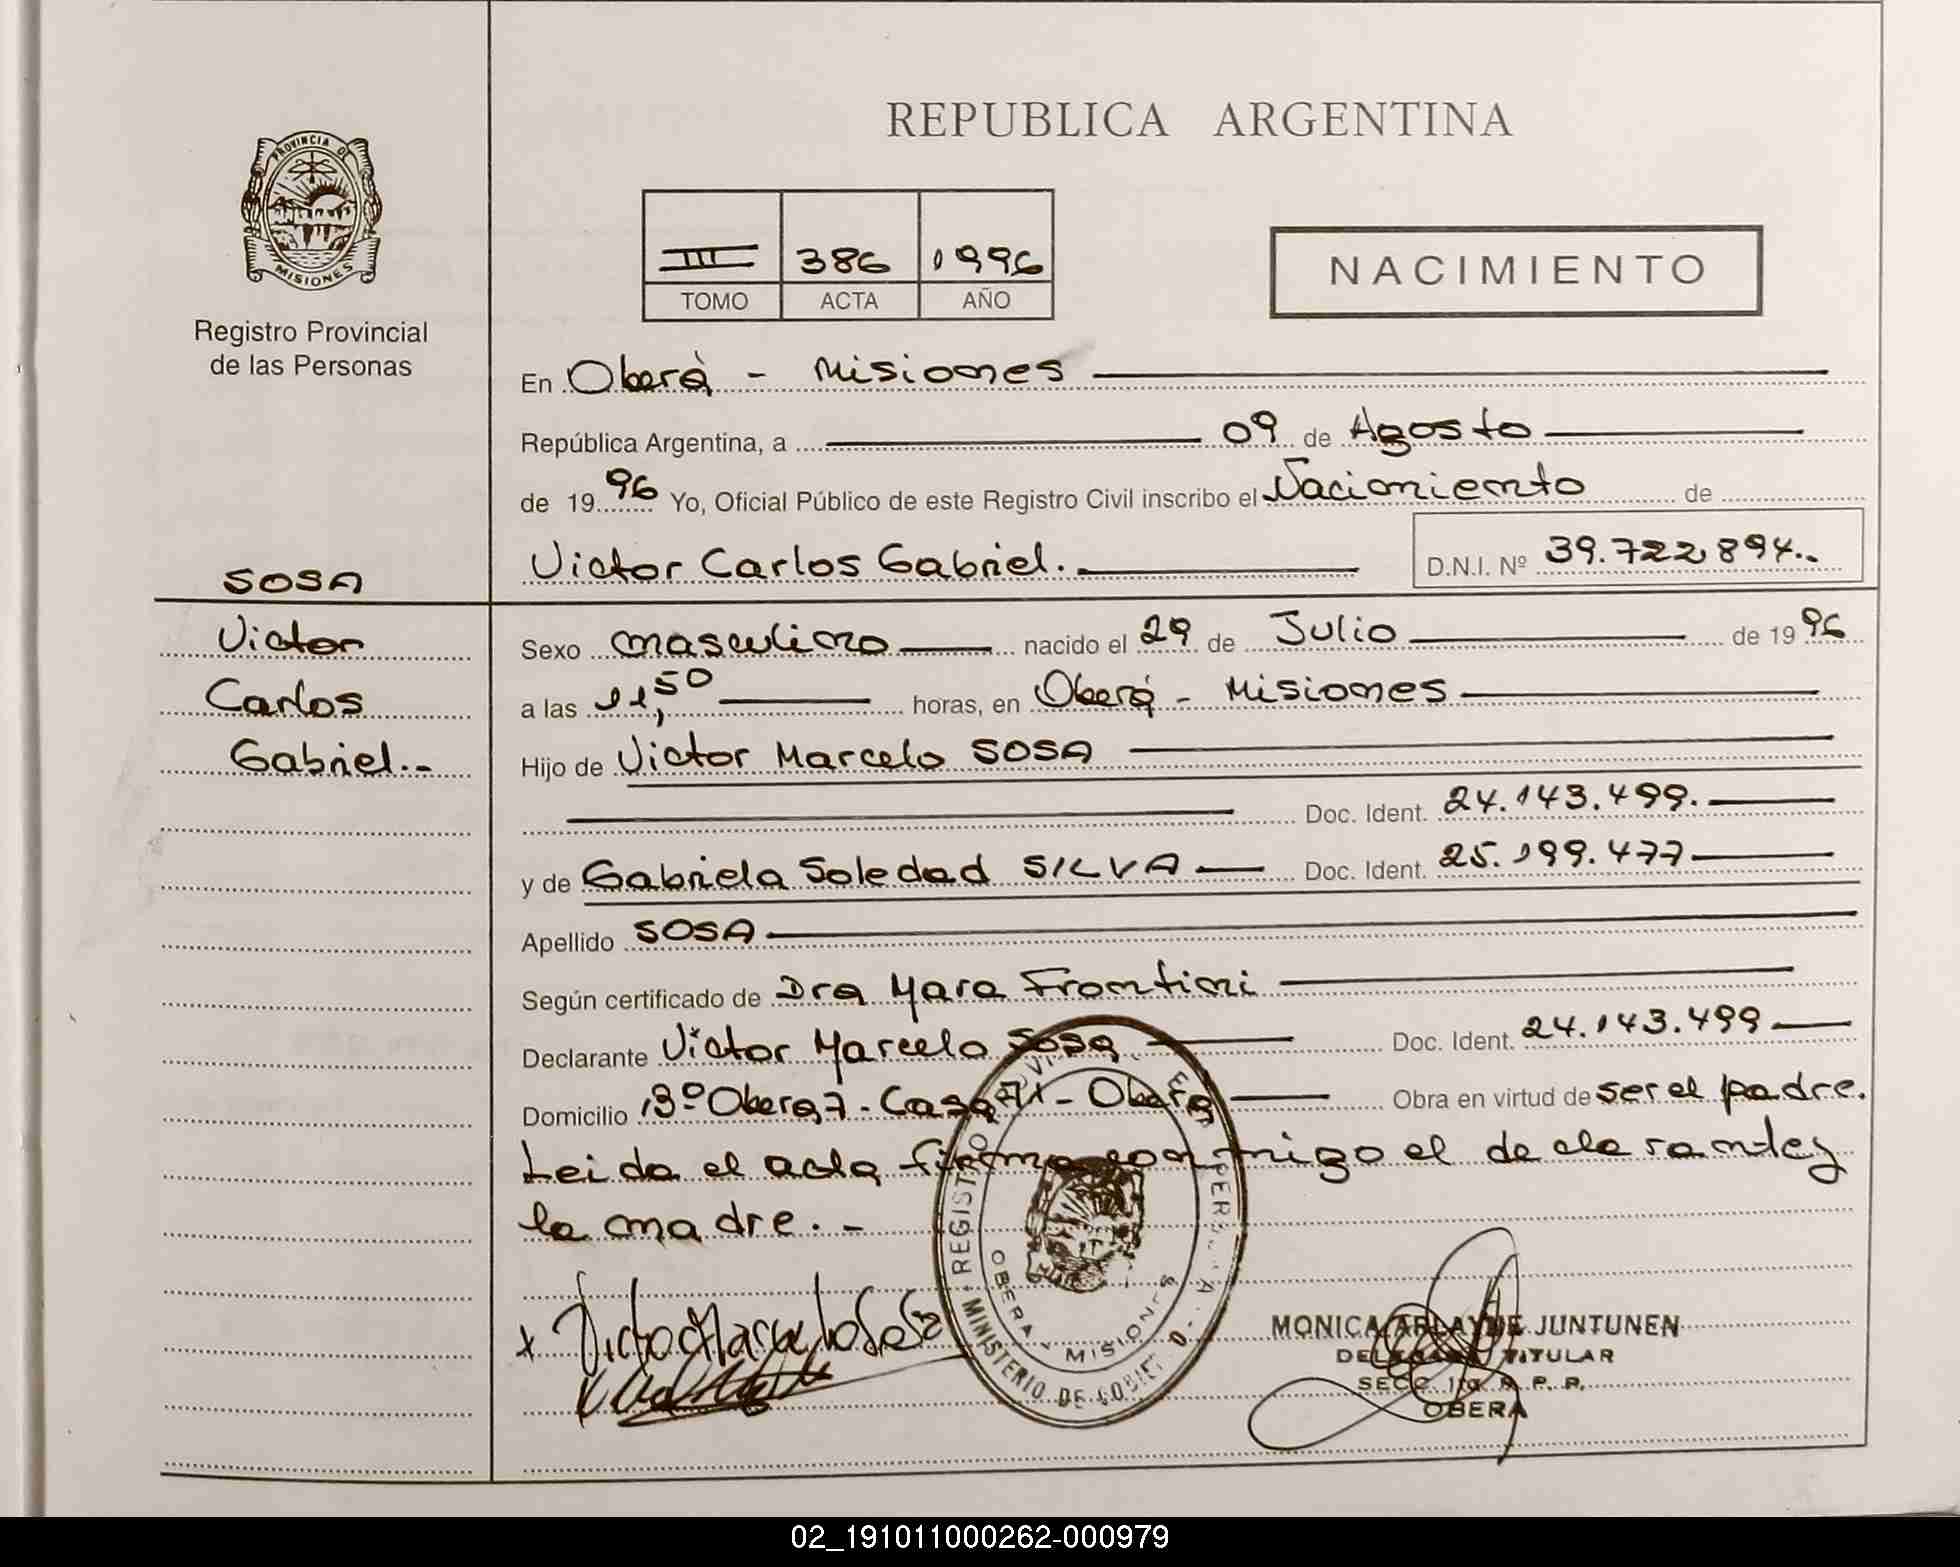 PROVINCIA DE
MISIONES
Registro Provincial
de las Personas
REPUBLICA ARGENTINA
III 386 1996
TOMO ACTA AÑO
NACIMIENTO
En Oberà - Misiones
República Argentina, a 09 de Agosto
de 1996 Yo, Oficial Público de este Registro Civil inscribo el Nacimiento de
Victor Carlos Gabriel. D.N.I. Nº 39.722.894..
SOSA
Victor
Carlos
Gabriel.-
Sexo masculino nacido el 29 de Julio de 1996
a las 11,50 horas, en Oberá - Misiones
Hijo de Victor Marcelo SOSA
Doc. Ident. 24.143.499.
y de Gabriela Soledad SILVA Doc. Ident. 25.199.477
Apellido SOSA
Según certificado de Dra Mara Frontini
Declarante Victor Marcelo Sosa Doc. Ident. 24.143.499
Domicilio Bº Obera 7 - Casa - Oberá Obra en virtud de ser el padre.
Leida el acta firma conmigo el declarante y
la madre. -
Victor Marcelo Sosa
REGISTRO
MINISTERIO DE
OBERA MISIONES
MONICA JUNTUNEN
TITULAR
SECC. R. P. P.
OBERA
02_191011000262-000979